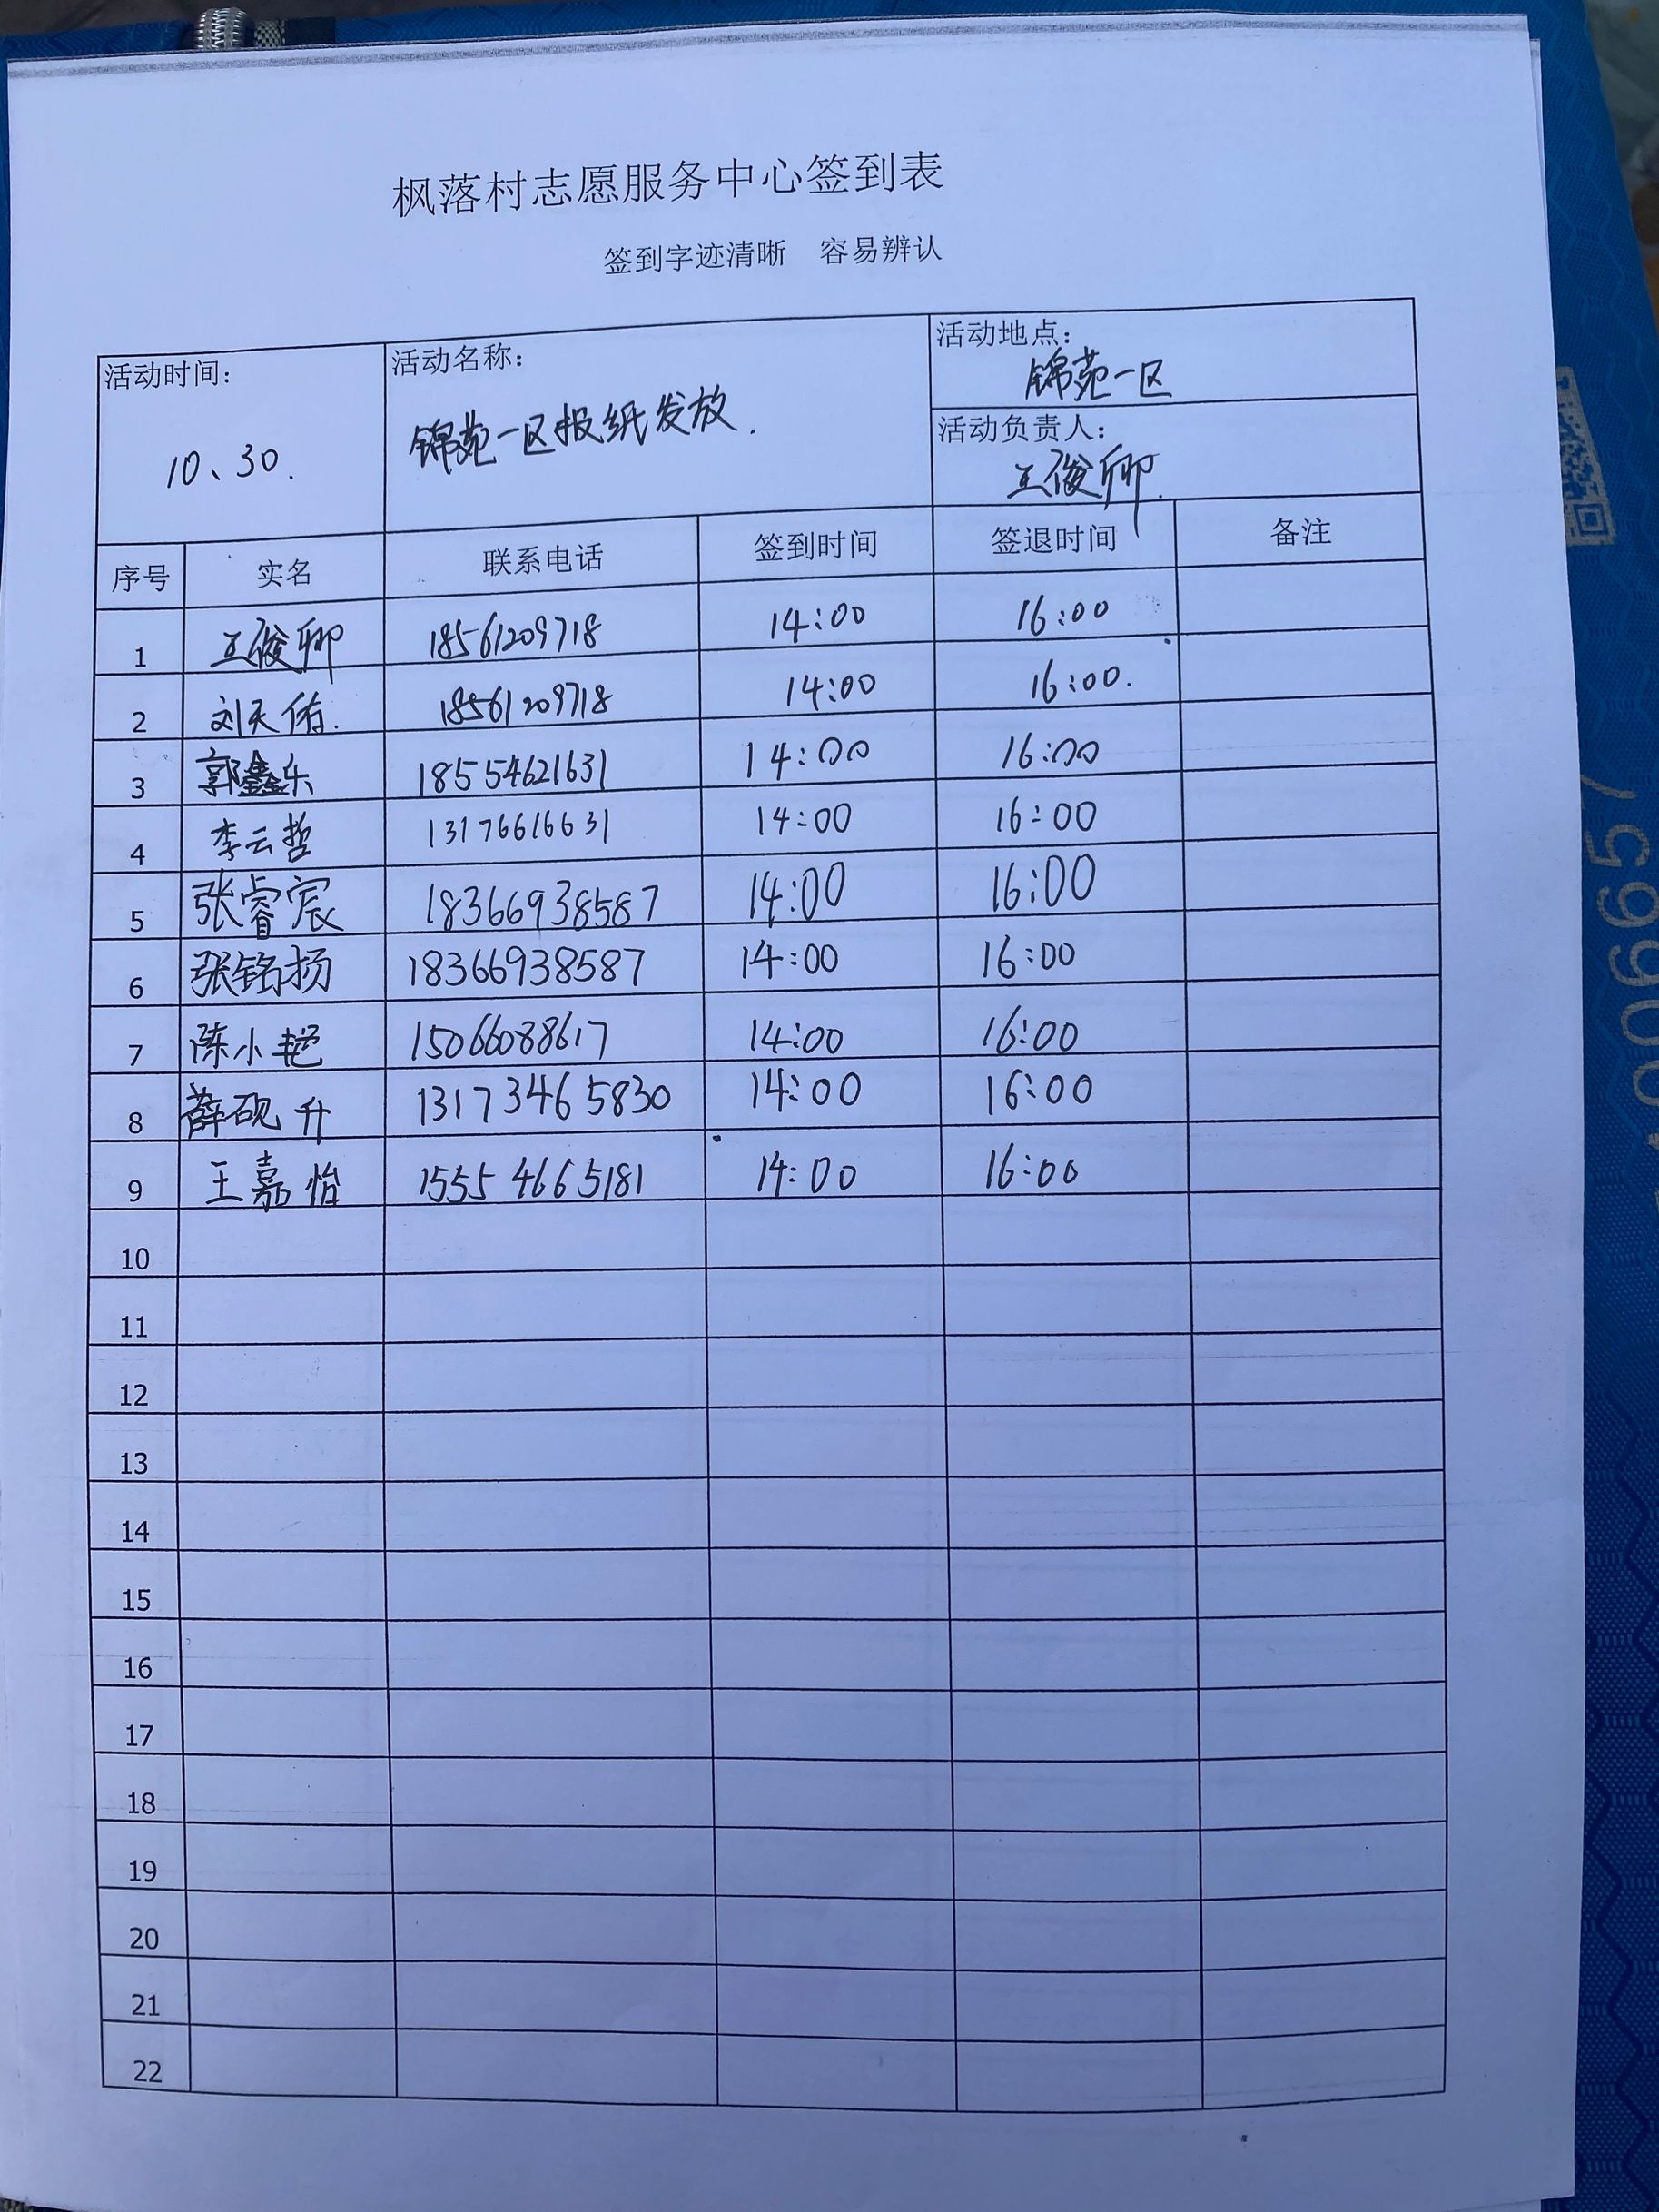 枫落村志愿服务中心签到表
签到字迹清晰 容易辨认
活动时间： 活动名称： 活动地点：
10、30. 锦苑一区报纸发放. 锦苑一区
活动负责人：
王俊卿.
序号 实名 联系电话 签到时间 签退时间 备注
1 王俊卿 18561209718 14:00 16:00
2 刘天佑. 18561209718 14:00 16:00.
3 郭鑫乐 18554621631 14:00 16:00
4 李云哲 13176616631 14:00 16:00
5 张睿宸 18366938587 14:00 16:00
6 张铭扬 18366938587 14:00 16:00
7 陈小艳 15066088617 14:00 16:00
8 薛砚升 13173465830 14:00 16:00
9 王嘉怡 15554665181 14:00 16:00
10
11
12
13
14
15
16
17
18
19
20
21
22